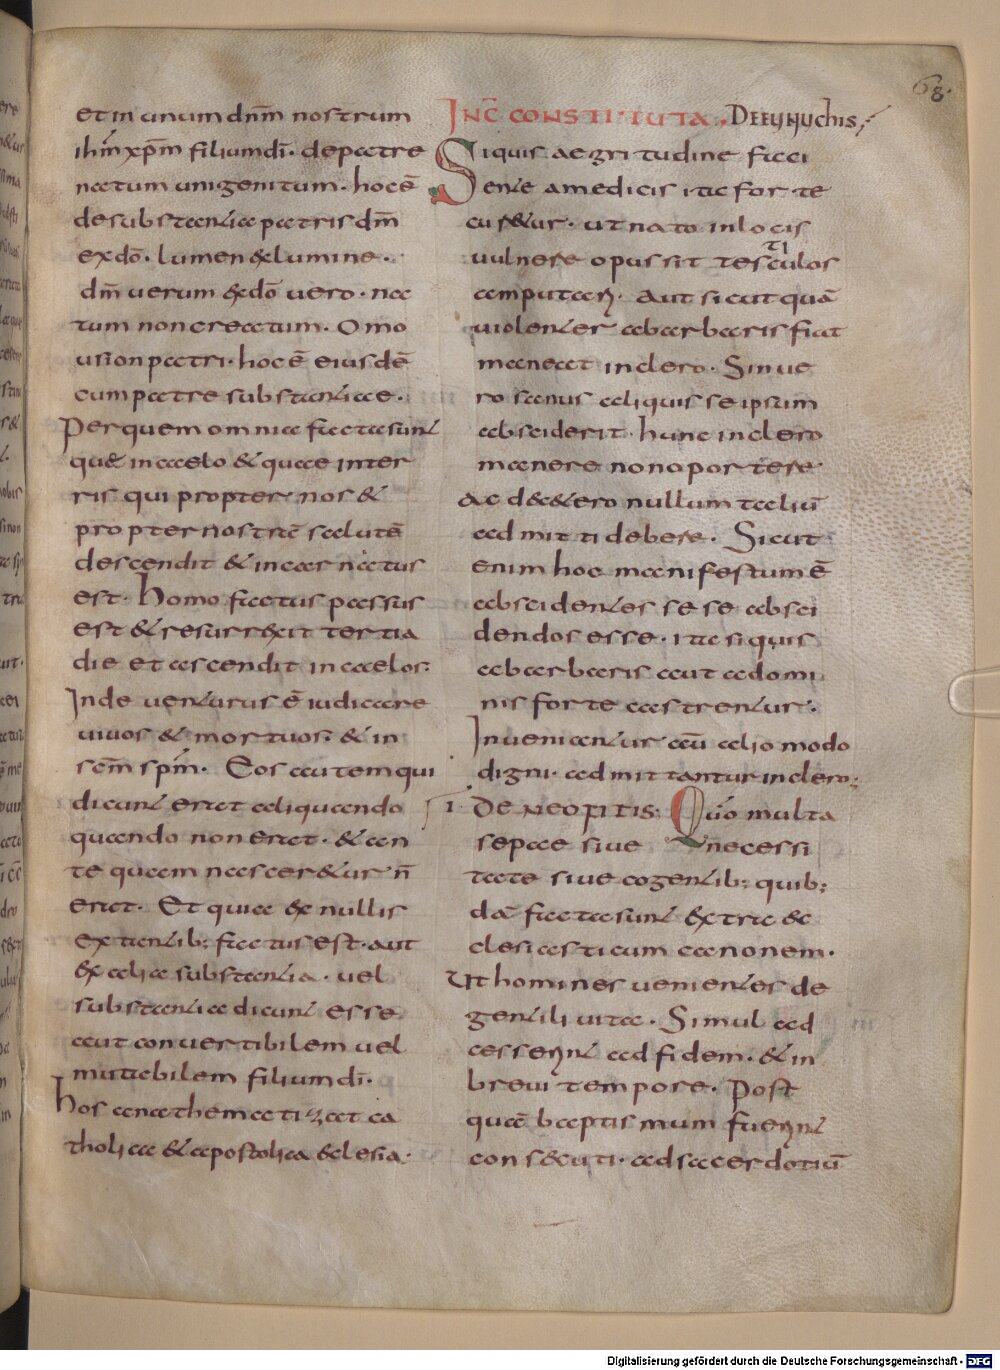 68.
et in unum dnm nostrum
ihm xpm filium di. de patre
natum unigenitum. hoc ē
de substantia patris dm
ex dō. lumen ex lumine.
dm verum ex dō vero. na
tum non creatum. Omo
usion patri. hoc ē eiusdē
cum patre substantiae.
Per quem omnia facta sunt
quae in caelo & quae inter
ris qui propter nos &
propter nostrā salutē
descendit & incarnatus
est. Homo factus passus
est & resurrexit tertia
die et ascendit in caelos.
Inde venturus ē iudicare
vivos & mortuos. & in
sc̄m sp̄m. Eos autem qui
dicunt erat aliquando
quando non erat. & an
te quam nasceretur n̄
erat. Et quia ex nullis
extantib; factus est. aut
ex alia substantia. vel
substantia dicunt esse
aut convertibilem vel
mutabilem filium di.
hos anathematizat ca
tholica & apostolica eclesia.
INC̄ CONSTITUTA. DE EUNUCHIS;
Si quis aegritudine faci
ente a medicis ita forte
cu setur. ut nato in locis
vulnere opus sit tesculos
ti
amputari. Aut si aut quā
violenter a barbaris fiat
maneat in clero. Sin ve
ro sanus aliquis se ipsum
absciderit. hunc in clero
manere non oportere
ac deetero nullum taliū
admitti debere. Sicut
enim hoc manifestum ē
abscidentes se se absci
dendos esse. ita si quis
a barbaris aut a domi
nis forte castrentur.
Inveniantur aū alio modo
digni. admittantur in clero;
I. DE NEOPITIS. Quō multa
saepae sive necessi
tate sive cogentib; quib;
dā facta sunt extra ec
clesiasticum canonem.
Ut homines venientes de
gentili vita. Simul ad
cesserint ad fidem. & in
brevi tempore. Post
quā baptismum fuerint
consecuti. ad sacerdotiū
Digitalisierung gefördert durch die Deutsche Forschungsgemeinschaft - DFG